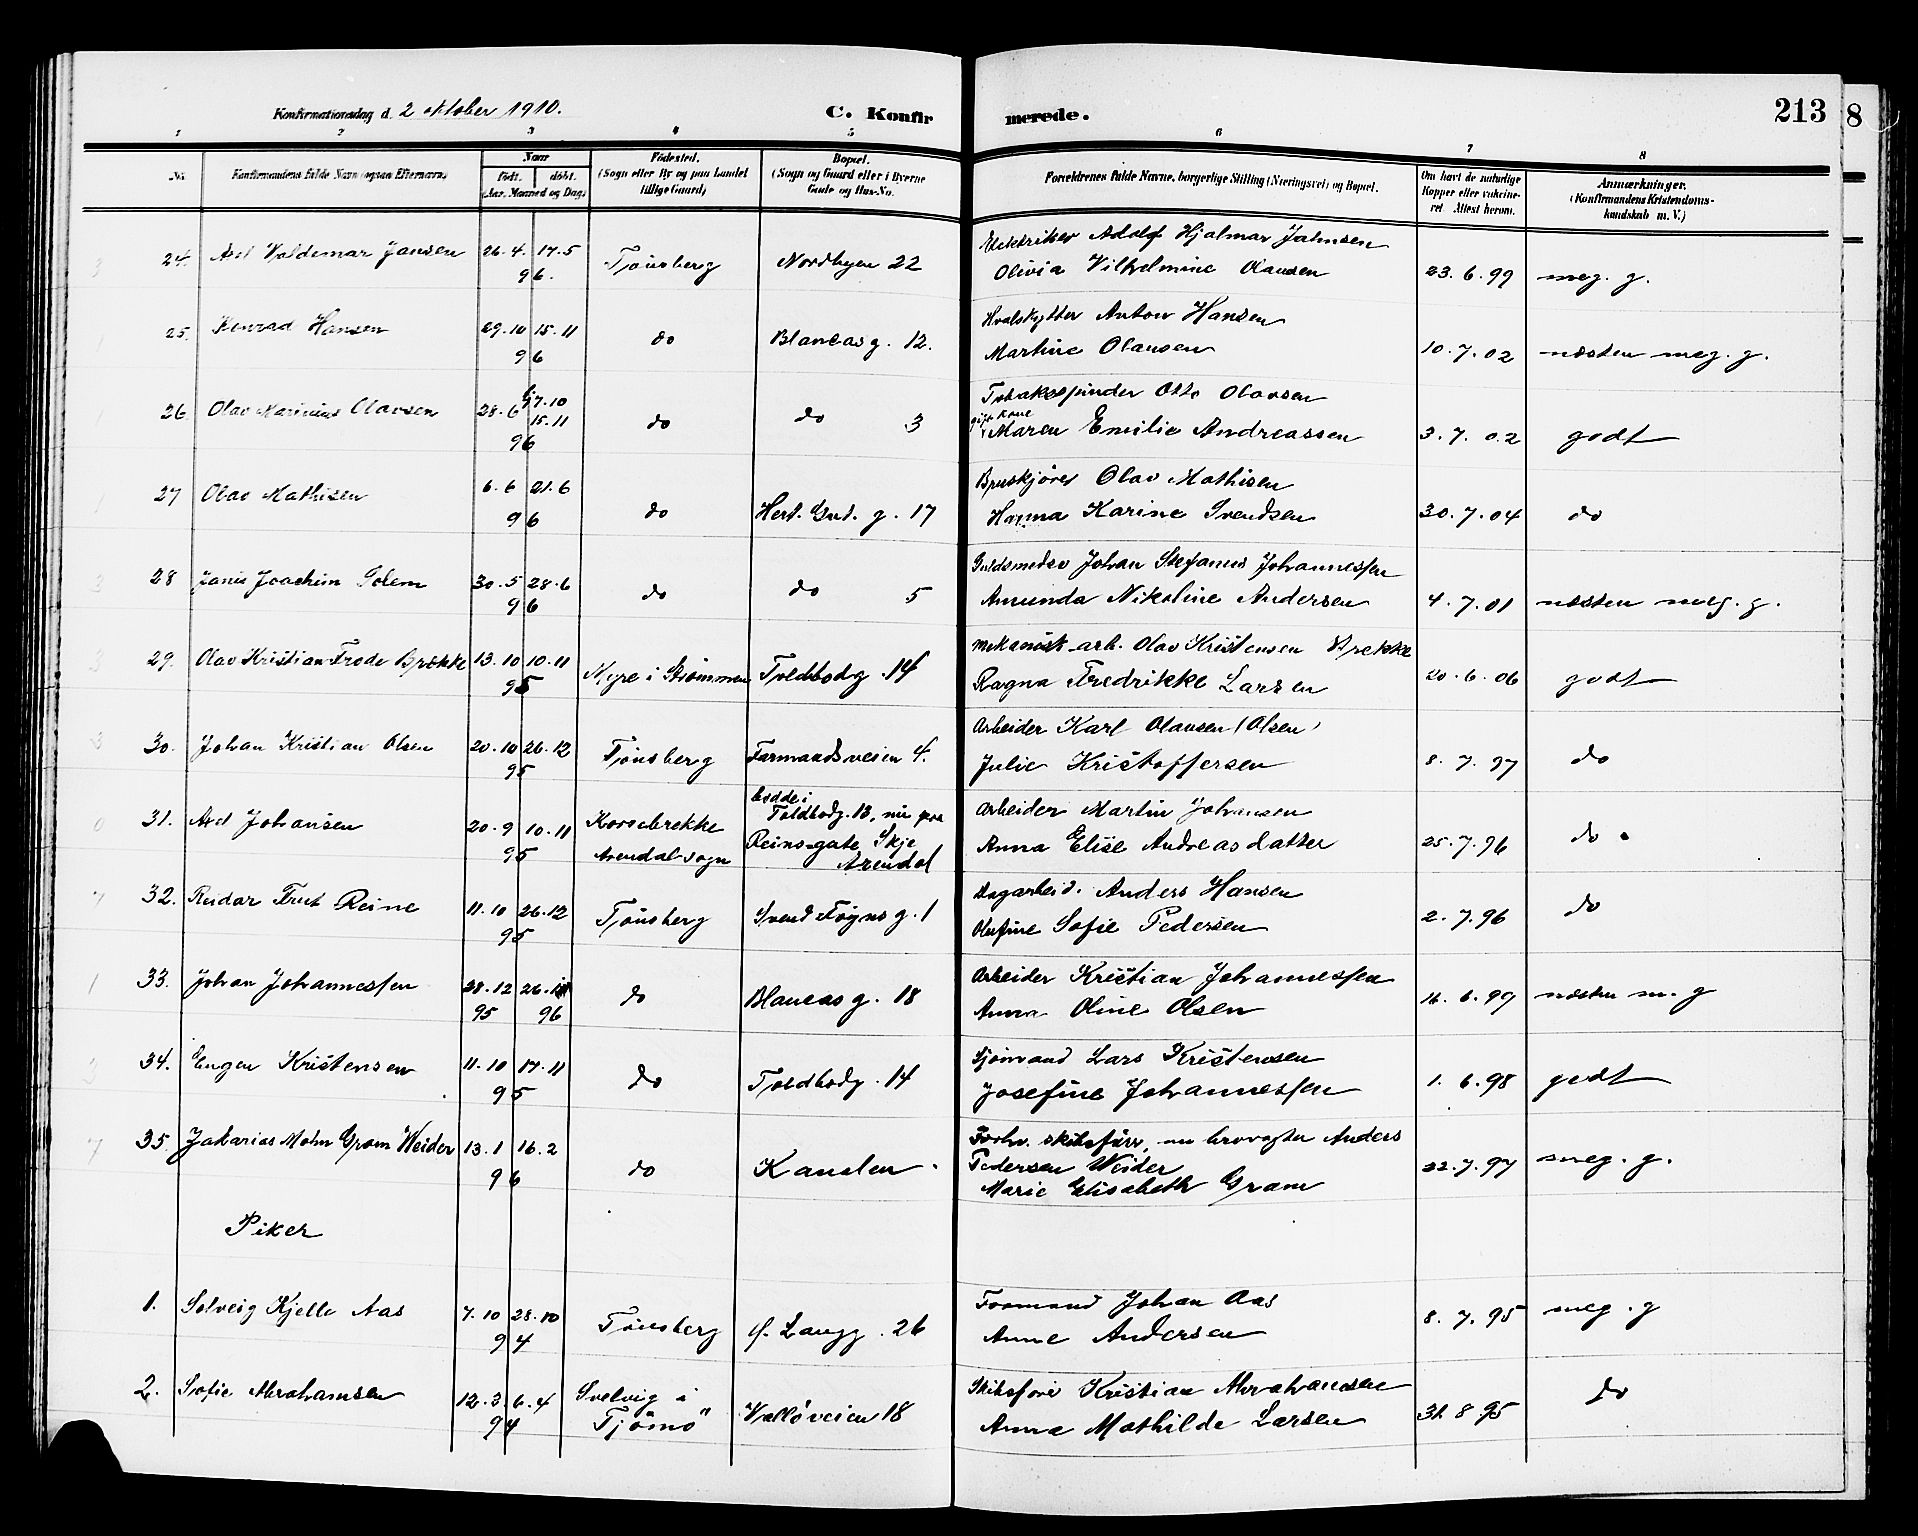 Konfirmationsdag d. 2 oktober 1910.
C. Konfir merede. 213 8
1 2 3 4 5 6 7 8
No. Konfirmandens fulde Navn (ogsaa Efternavn). Naar Født. døbt. (Aar, Maaned og Dag) Fødested. (Sogn eller By og paa Landet tillige Gaard) Bopæl. (Sogn og Gaard eller i Byerne Gade og Hus-No. Forældrenes fulde Navne, borgerlige Stilling (Næringsvei) og Bopæl. Om havt de naturlige Kopper eller vakcineret. Attest herom. Anmærkninger. (Konfirmandens Kristendomskundskab m. V.)
24. Axel Valdemar Jansen 26.4. 17.5 96. Tønsberg Nordbyen 22 Elektriker Adolf Hjalmar Jahnsen
Olivia Vilhelmine Olausen 23.6.99 meg. g.
25. Konrad Hansen 29.10 15.11 96 do Blancasg. 12. Hvalskytter Anton Hansen
Martine Olausen 10.7.02 næsten meg. g.
26. Olav Marinius Olavsen 28.6 17.10 15.11 96 do do 3 Tobakspinder Otto Olavsen
gift kone Maren Emilie Andreassen 3.7.02 godt
27 Olav Mathisen 6.6 21.6 96 do Hert. Gut. g. 17 Bruskjører Olav Mathisen
Hanna Karine Svendsen 30.7.04 do
28 Janis Joachim Solem 30.5 28.6 96 do do 5 Guldsmedsv Johan Stefanus Johannessen
Amunda Nikoline Andersen 4.7.01 næsten meg. g.
29. Olav Kristian Frode Brække 13.10 10.11 95 Myre i Strømmen Toldbodg. 14 mekanisk arb. Olav Kristensen Brekke
Ragna Fredrikke Larsen 20.6.06 godt
30. Johan Kristian Olsen 20.10 26.12 95 Tønsberg Farmandsveien 4. Arbeider Karl Olausen (Olsen)
Julie Kristoffersen 8.7.97 do
31. Axel Johansen 20.9 10.11 95 Korsebrekke Arendal sogn bodde i Toldbodg. 13, nu paa Reinsgate, Skje Arendal Arbeider Martin Johansen
Anna Elise Andreasdatter 25.7.96 do
32. Reidar Reine 11.10 26.12 95 Tønsberg Svend Foyns g. 1 Dagarbeid. Anders Hansen
Olufine Sofie Pedersen 2.7.96 do
33. Johan Johannessen 28.12 95 26. 96 do Blancas g. 18 Arbeider Kristian Johannessen
Anna Oline Olsen 16.6.99 næsten m. g
34. Eugen Kristensen 11.10 17.11 95 do Toldbodg. 14 Sjømand Lars Kristensen
Josefine Johannessen 1.6.98 godt
35. Zakarias Mohn Gram Weider 13.1 16.2 96 do Kanalen Forhv. skibsfører, nu Anders
Pedersen Weider
Marie Elisabeth Gram 22.7.97 meg. g.
Piker
1. Solveig Kjelle Aas 7.10 28.10 94 Tønsberg Langg. 26 Formand Johan Aas
Anne Andersen 8.7.95 meg. g
2. Sofie Abrahamsen 12.3 6.4 94 Svelvig i Tjømø Valløveien 18 Skibsfører Kristian Abrahamsen
Anna Mathilde Larsen 31.8.95 do